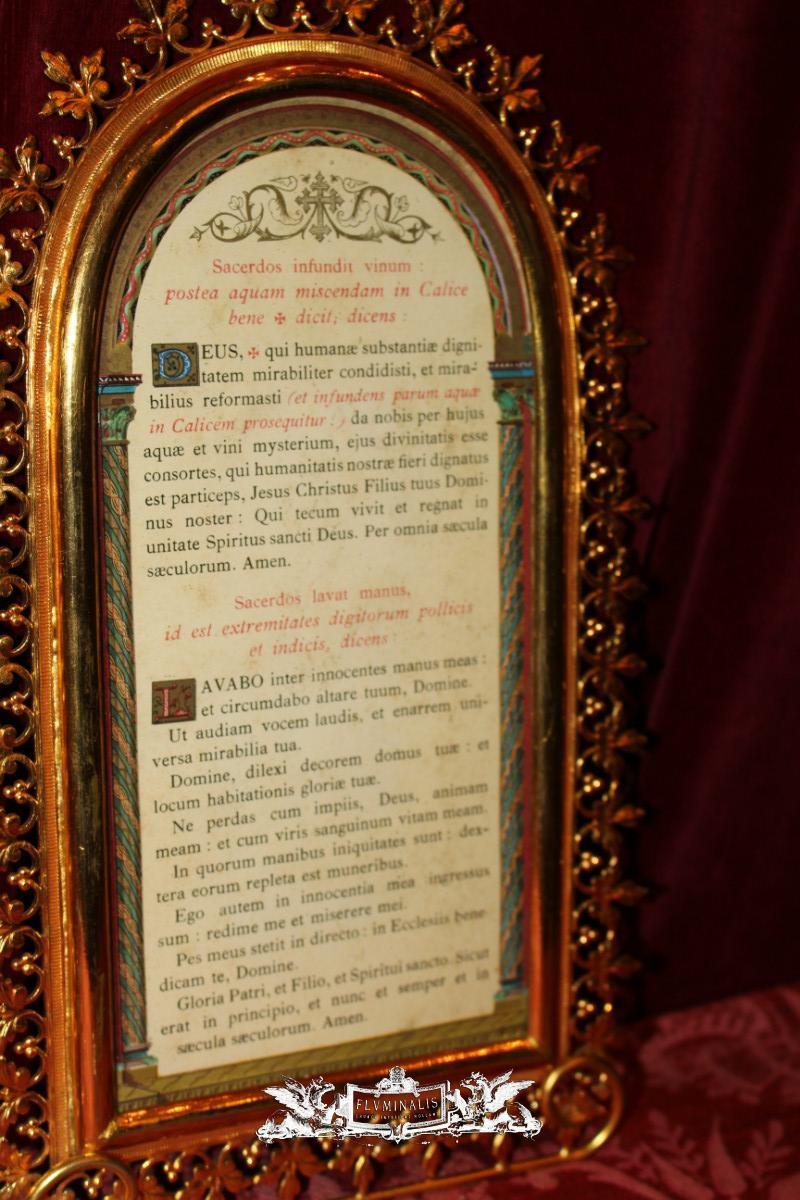 Sacerdos infundit vinum :
postea aquam miscendam in Calice
bene ✠ dicit, dicens :
DEUS, ✠ qui humanæ substantiæ digni-
tatem mirabiliter condidisti, et mira-
bilius reformasti (et infundens parum aquæ
in Calicem prosequitur :) da nobis per hujus
aquæ et vini mysterium, ejus divinitatis esse
consortes, qui humanitatis nostræ fieri dignatus
est particeps, Jesus Christus Filius tuus Domi-
nus noster : Qui tecum vivit et regnat in
unitate Spiritus sancti Deus. Per omnia sæcula
sæculorum. Amen.
Sacerdos lavat manus,
id est extremitates digitorum pollicis
et indicis, dicens :
LAVABO inter innocentes manus meas :
et circumdabo altare tuum, Domine.
Ut audiam vocem laudis, et enarrem uni-
versa mirabilia tua.
Domine, dilexi decorem domus tuæ : et
locum habitationis gloriæ tuæ.
Ne perdas cum impiis, Deus, animam
meam : et cum viris sanguinum vitam meam.
In quorum manibus iniquitates sunt : dex-
tera eorum repleta est muneribus.
Ego autem in innocentia mea ingressus
sum : redime me et miserere mei.
Pes meus stetit in directo : in Ecclesiis bene-
dicam te, Domine.
Gloria Patri, et Filio, et Spiritui sancto. Sicut
erat in principio, et nunc et semper et in
sæcula sæculorum. Amen.
FLVMINALIS